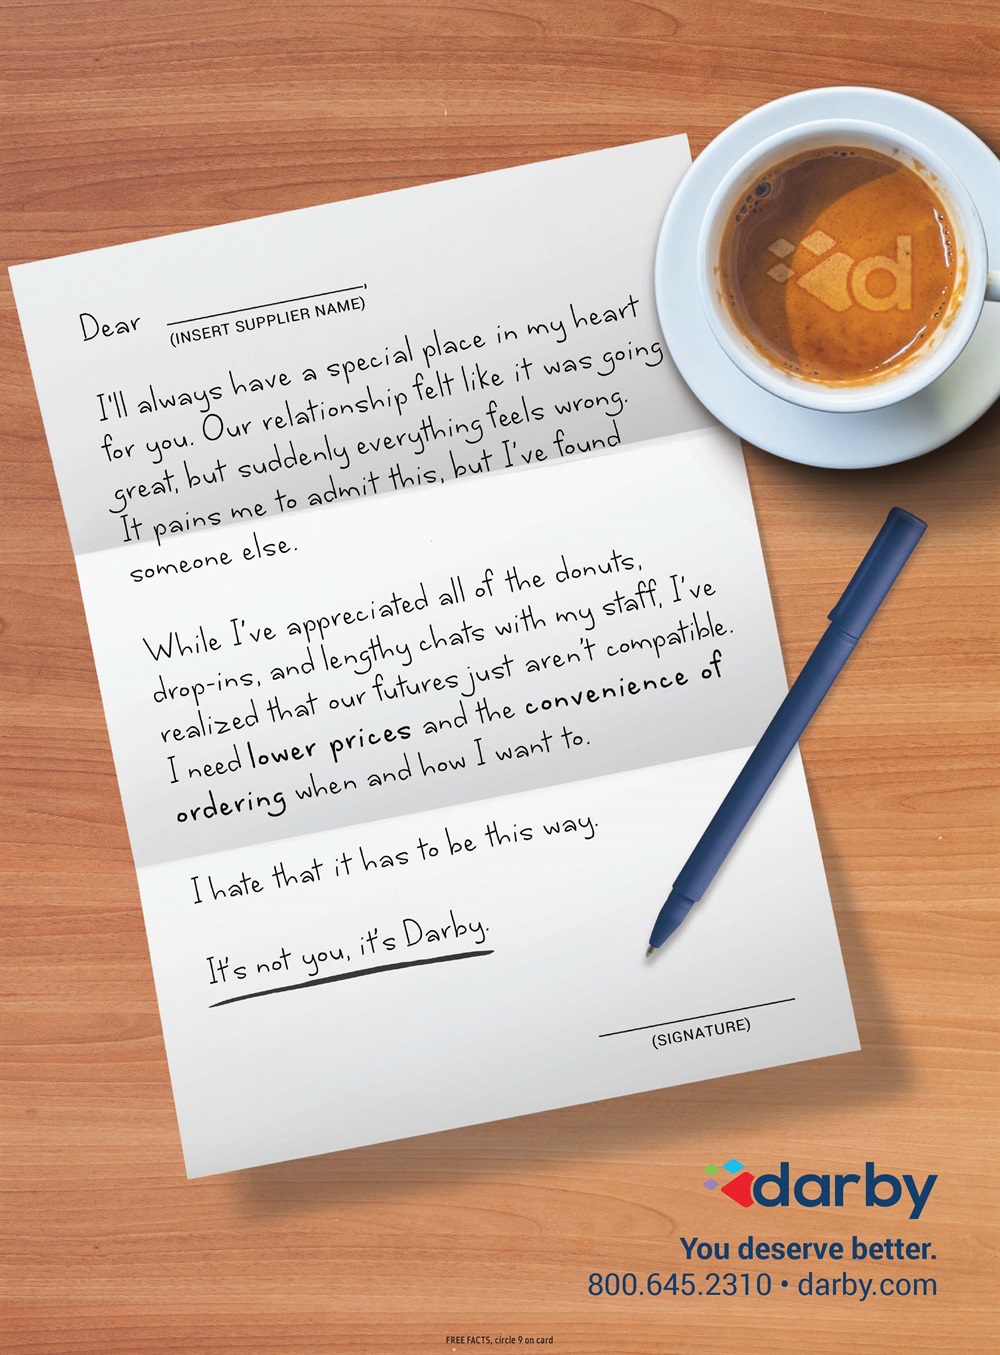 Dear ____________,
(INSERT SUPPLIER NAME)
I'll always have a special place in my heart
for you. Our relationship felt like it was going
great, but suddenly everything feels wrong.
It pains me to admit this, but I've found
someone else.
While I've appreciated all of the donuts,
drop-ins, and lengthy chats with my staff, I've
realized that our futures just aren't compatible.
I need lower prices and the convenience of
ordering when and how I want to.
I hate that it has to be this way.
It's not you, it's Darby.
(SIGNATURE)
d
darby
You deserve better.
800.645.2310 • darby.com
FREE FACTS, circle 9 on card